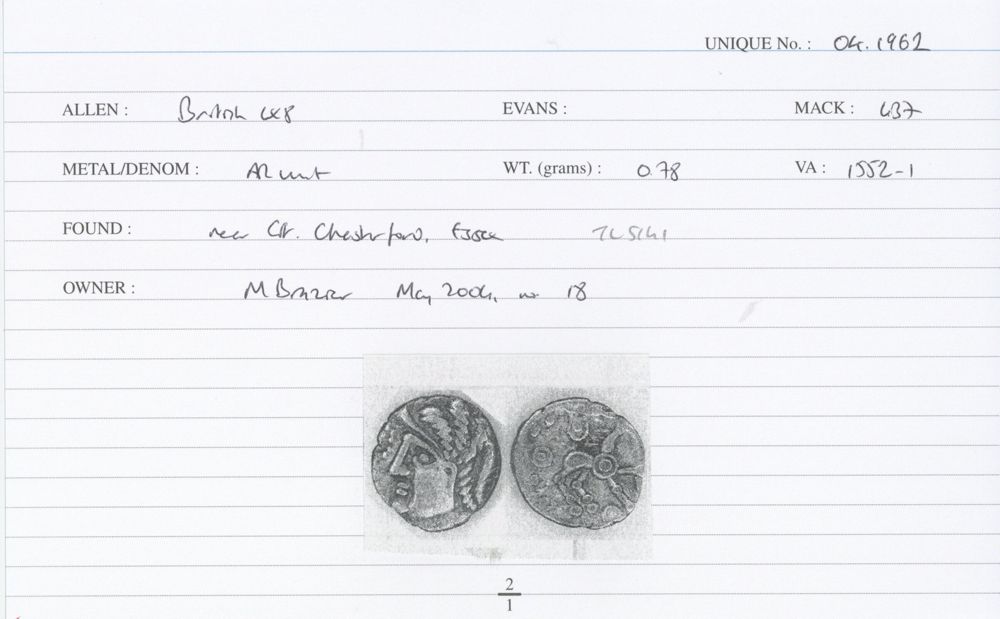 UNIQUE No. : 04.1962
ALLEN : British LX8 EVANS : MACK : 437
METAL/DENOM : AR unit WT. (grams) : 0.78 VA : 1552-1
FOUND : near Gt. Chesterford, Essex TL5141
OWNER : M Brazier May 2004, no 18
2
1